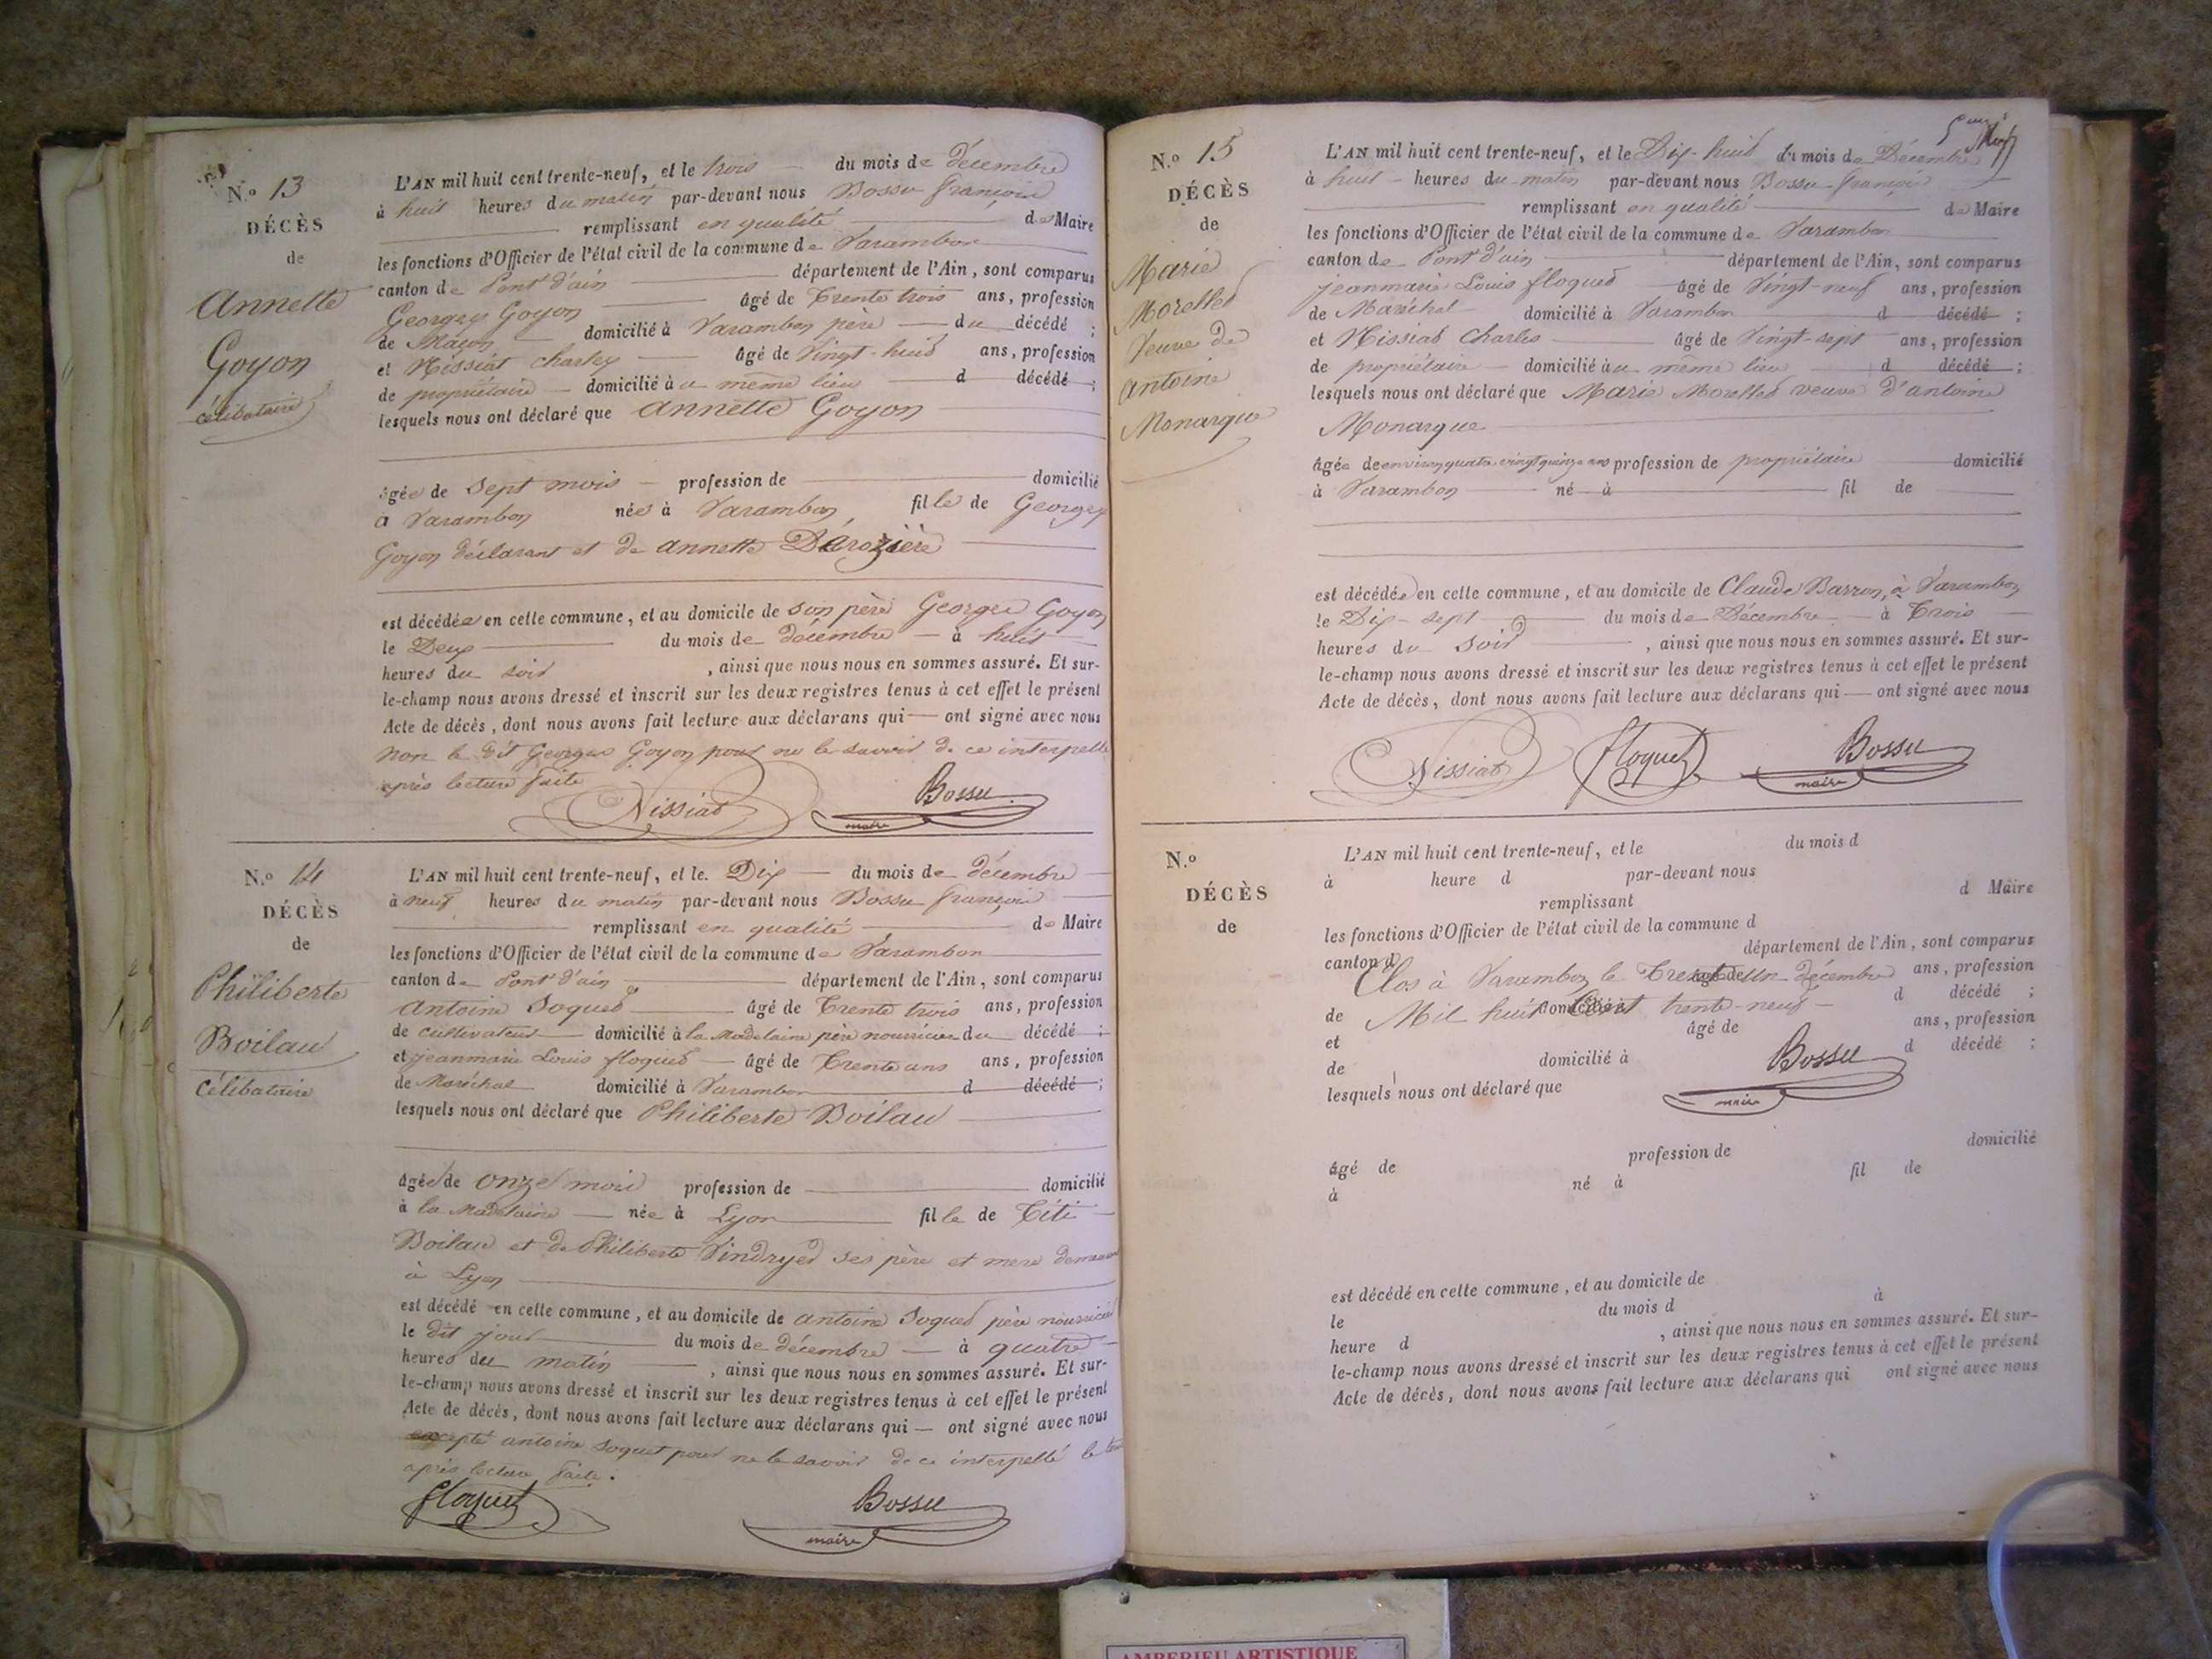 N.º 13
DÉCÈS
de
Annette
Goyon
célibataire
L'AN mil huit cent trente-neuf, et le trois du mois de décembre
à huit heures du matin par-devant nous Bossu françois
remplissant en qualité de Maire
les fonctions d'Officier de l'état civil de la commune de Varambon
canton de Pont d'ain département de l'Ain, sont comparus
Georges Goyon âgé de Trente trois ans, profession
de Maçon domicilié à Varambon père du décédé ;
et Nissiat charles âgé de Vingt-huit ans, profession
de propriétaire domicilié au même lieu d décédé ;
lesquels nous ont déclaré que Annette Goyon
âgée de sept mois profession de domicilié
à Varambon née à Varambon fille de Georges
Goyon déclarant et de annette Dérozière
est décédée en cette commune, et au domicile de son père Georges Goyon
le Deux du mois de décembre à huit
heures du soir , ainsi que nous nous en sommes assuré. Et sur-
le-champ nous avons dressé et inscrit sur les deux registres tenus à cet effet le présent
Acte de décès, dont nous avons fait lecture aux déclarans qui ont signé avec nous
non le dit Georges Goyon pour ne le savoir de ce interpellé
après lecture faite
Nissiat Bossu
maire
N.º 14
DÉCÈS
de
Philiberte
Boilau
célibataire
L'AN mil huit cent trente-neuf, et le Dix du mois de décembre
à neuf heures du matin par-devant nous Bossu françois
remplissant en qualité de Maire
les fonctions d'Officier de l'état civil de la commune de Varambon
canton de Pont d'ain département de l'Ain, sont comparus
antoine Soquet âgé de Trente trois ans, profession
de cultivateur domicilié à la Madelaine père nourricier du décédé ;
et jeanmarie Louis floquet âgé de Trente ans ans, profession
de Maréchal domicilié à Varambon d décédé ;
lesquels nous ont déclaré que Philiberte Boilau
âgée de onze mois profession de domicilié
à la Madelaine née à Lyon fille de Titi
Boilau et de Philiberte Vindryed ses père et mere
à Lyon
est décédé en cette commune, et au domicile de antoine Soquet père nourricier
le dit jour du mois de décembre à quatre
heures du matin , ainsi que nous nous en sommes assuré. Et sur-
le-champ nous avons dressé et inscrit sur les deux registres tenus à cet effet le présent
Acte de décès, dont nous avons fait lecture aux déclarans qui ont signé avec nous
excepté antoine soquet pour ne le savoir de ce interpellé le
après lecture faite.
floquet Bossu
maire
N.º 15
DÉCÈS
de
Marie
Morellet
Veuve de
antoine
Monarque
L'AN mil huit cent trente-neuf, et le Dix-huit du mois de Décembre
à huit heures du matin par-devant nous Bossu françois
remplissant en qualité de Maire
les fonctions d'Officier de l'état civil de la commune de Varambon
canton de Pont d'ain département de l'Ain, sont comparus
jeanmarie Louis floquet âgé de Vingt-neuf ans, profession
de Maréchal domicilié à Varambon d décédé ;
et Nissiat Charles âgé de Vingt-sept ans, profession
de propriétaire domicilié au même lieu d décédé ;
lesquels nous ont déclaré que Marie Morellet veuve d'antoine
Monarque
âgée de environ quatre vingt quinze ans profession de propriétaire domicilié
à Varambon né à fil de
est décédée en cette commune, et au domicile de Claude Barron, à Varambon
le Dix-sept du mois de Décembre à Trois
heures du soir , ainsi que nous nous en sommes assuré. Et sur-
le-champ nous avons dressé et inscrit sur les deux registres tenus à cet effet le présent
Acte de décès, dont nous avons fait lecture aux déclarans qui ont signé avec nous
Nissiat floquet Bossu
maire
N.º
DÉCÈS
de
L'AN mil huit cent trente-neuf, et le du mois d
à heure d par-devant nous
remplissant d Maire
les fonctions d'Officier de l'état civil de la commune d
canton d département de l'Ain, sont comparus
Clos à Varambon le Trente un décembre âgé de ans, profession
de Mil huit Cent trente-neuf domicilié à d décédé ;
et âgé de ans, profession
de domicilié à d décédé ;
Bossu
maire
lesquels nous ont déclaré que
âgé de profession de domicilié
à né à fil de
est décédé en cette commune, et au domicile de
le du mois d à
heure d , ainsi que nous nous en sommes assuré. Et sur-
le-champ nous avons dressé et inscrit sur les deux registres tenus à cet effet le présent
Acte de décès, dont nous avons fait lecture aux déclarans qui ont signé avec nous
AMBERIEU ARTISTIQUE